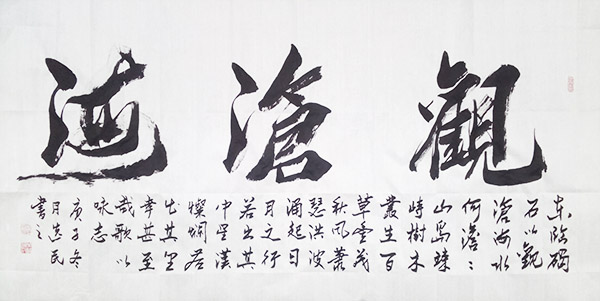 觀滄海
东临碣
石以觀
滄海水
何澹〻
山島竦
峙樹木
叢生百
草豐茂
秋風蕭
瑟洪波
涌起日
月之行
若出其
中星漢
燦爛若
出其里
幸甚至
哉歌以
咏志
庚子冬
月民
書之